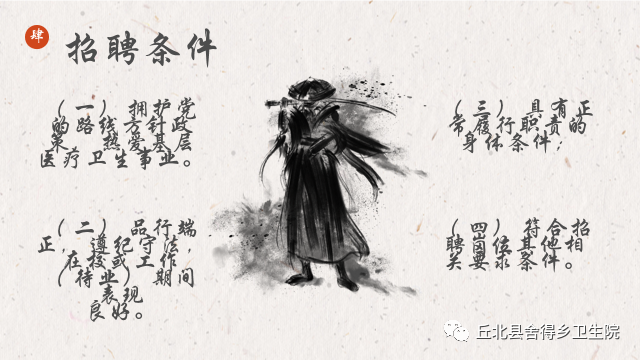 肆
招聘条件
（一）拥护党
的路线方针政
策，热爱基层
医疗卫生事业。
（二）品行端
正，遵纪守法，
在校或工作
（待业）期间
表现
良好。
（三）具有正
常履行职责的
身体条件；
（四）符合招
聘岗位其他相
关要求条件。
丘北县舍得乡卫生院